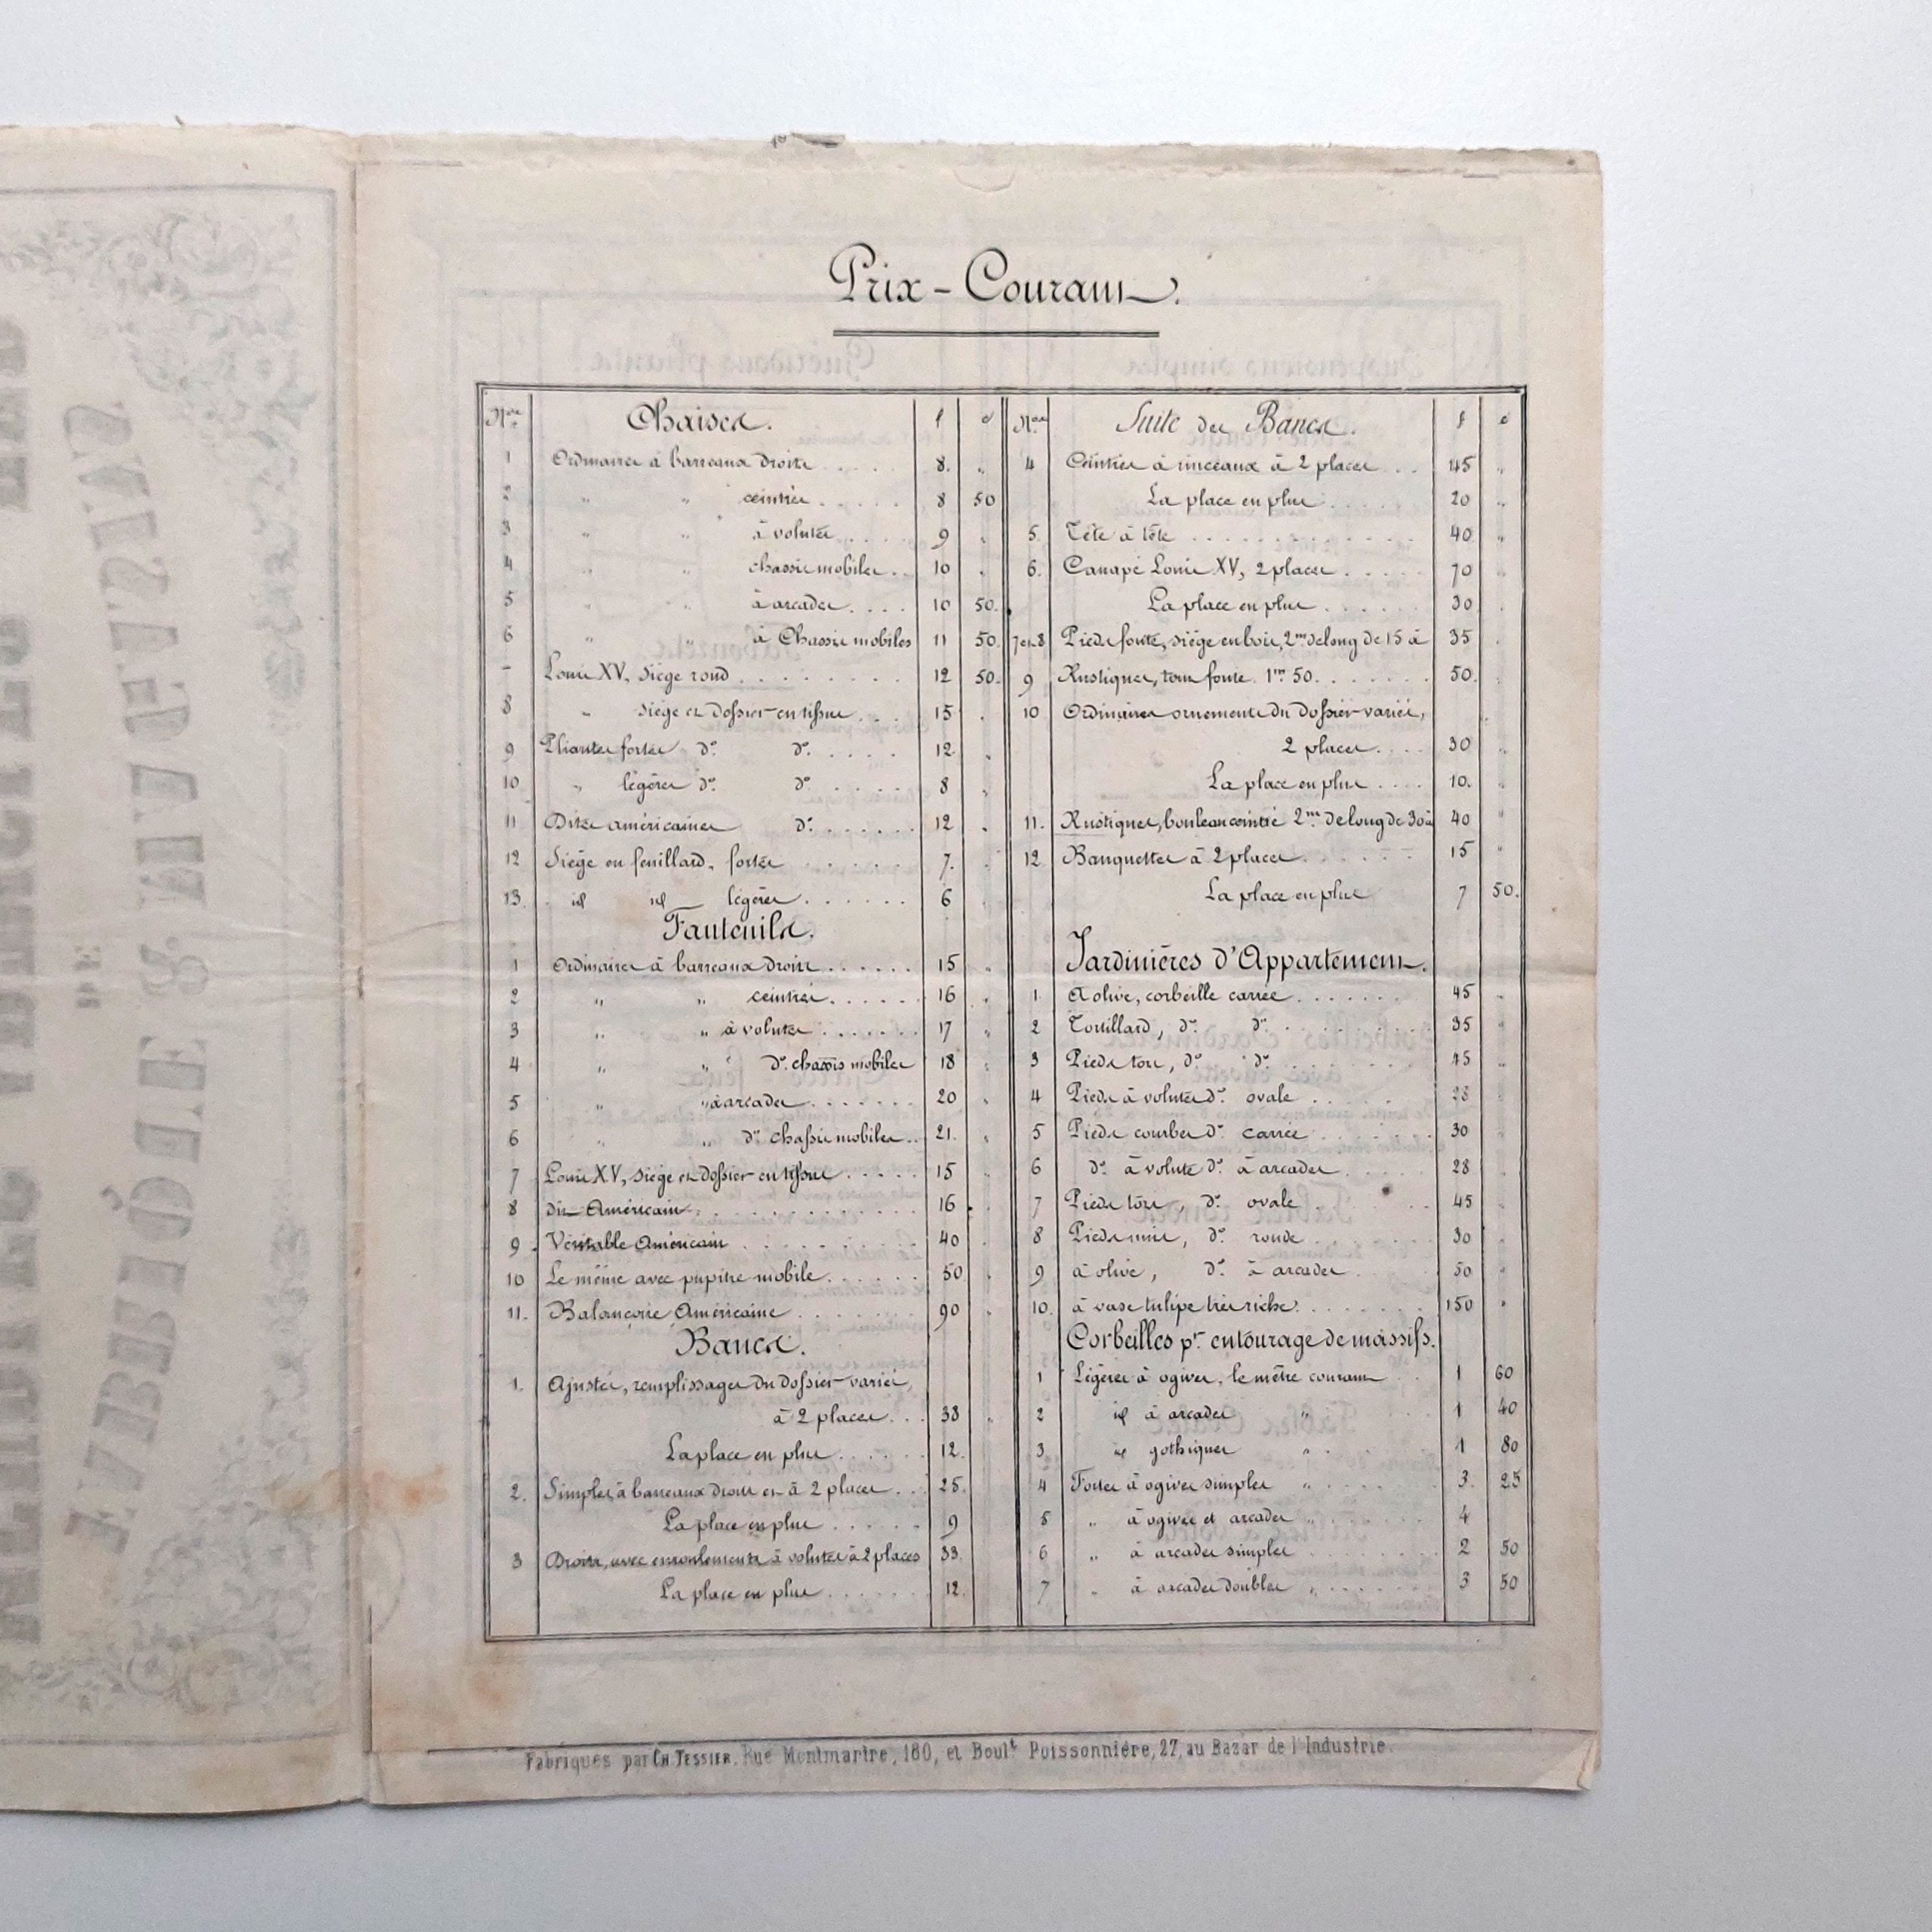 Prix-Courant.
Nos Chaises. f c
1 Ordinaires à barreaux droits 8. "
2 " " ceintrés 8 50
3 " " à volutes 9 "
4 " " chassis mobiles 10 "
5 " " à arcades 10 50.
6 " " à Chassis mobiles 11 50.
Louis XV, siège rond 12 50.
8 " siège et dossier en tissus 15 "
9 Pliantes fortes do. do. 12 "
10 " légères do. do. 8 "
11 Dites américaines do. 12 "
12 Siège en feuillard, fortes 7.
13. id id légères 6
Fauteuils.
1 Ordinaires à barreaux droits 15 "
2 " " ceintrés 16 "
3 " " à volutes 17 "
4 " " do. chassis mobiles 18 "
5 " " à arcades 20 "
6 " " do. chassis mobiles 21. "
7 Louis XV, siège et dossier en tissus 15
8 dit Américain 16
9 Véritable Américain 40
10 Le même avec pupitre mobile 50
11. Balançoire Américaine 90 "
Bancs.
1. Ajustés, remplissages du dossier variés,
à 2 places 38 "
La place en plus 12.
2. Simples, à barreaux droits et à 2 places 25.
La place en plus 9
3 Droits, avec enroulements à volutes à 2 places 33.
La place en plus 12.
Nos Suite des Bancs. f c
4 Ceintrés à rinceaux à 2 places 45 "
La place en plus 20 "
5. Tête à tête 40 "
6. Canapé Louis XV, 2 places 70
La place en plus 30
7 et 8 Pieds fonte, siège en bois, 2m. de long de 15 à 35
9 Rustiques, tout fonte 1m 50. 50.
10 Ordinaires ornements du dossier variés,
2 places 30 "
La place en plus 10. "
11. Rustiques, bouleau ceintré 2m. de long de 30 à 40 "
12 Banquettes à 2 places 15 "
La place en plus 7 50.
Jardinières d'Appartement.
1. A olive, corbeille carrée 45 "
2 Tortillard, do. do. 35 "
3 Pieds tors, do. do. 45 "
4 Pieds à volutes do. ovale 28
5 Pieds courbes do. carrée 30 "
6 do. à volute do. à arcades 28
7 Pieds tors, do. ovale 45
8 Pieds unis, do. ronde 30
9 à olive, do. à arcades 50 "
10. à vase tulipe très riche 150 "
Corbeilles pr. entourage de massifs.
1 Légères à ogives, le mètre courant 1 60
2 id à arcades " 1 40
3 id gothiques " 1 80
4 Fortes à ogives simples " 3. 25
5 " à ogives et arcades " 4
6 " à arcades simples 2 50
7 " à arcades doubles " 3 50
Fabriqués par CH. TESSIER. Rue Montmartre, 180, et Boult. Poissonnière, 27, au Bazar de l'Industrie.